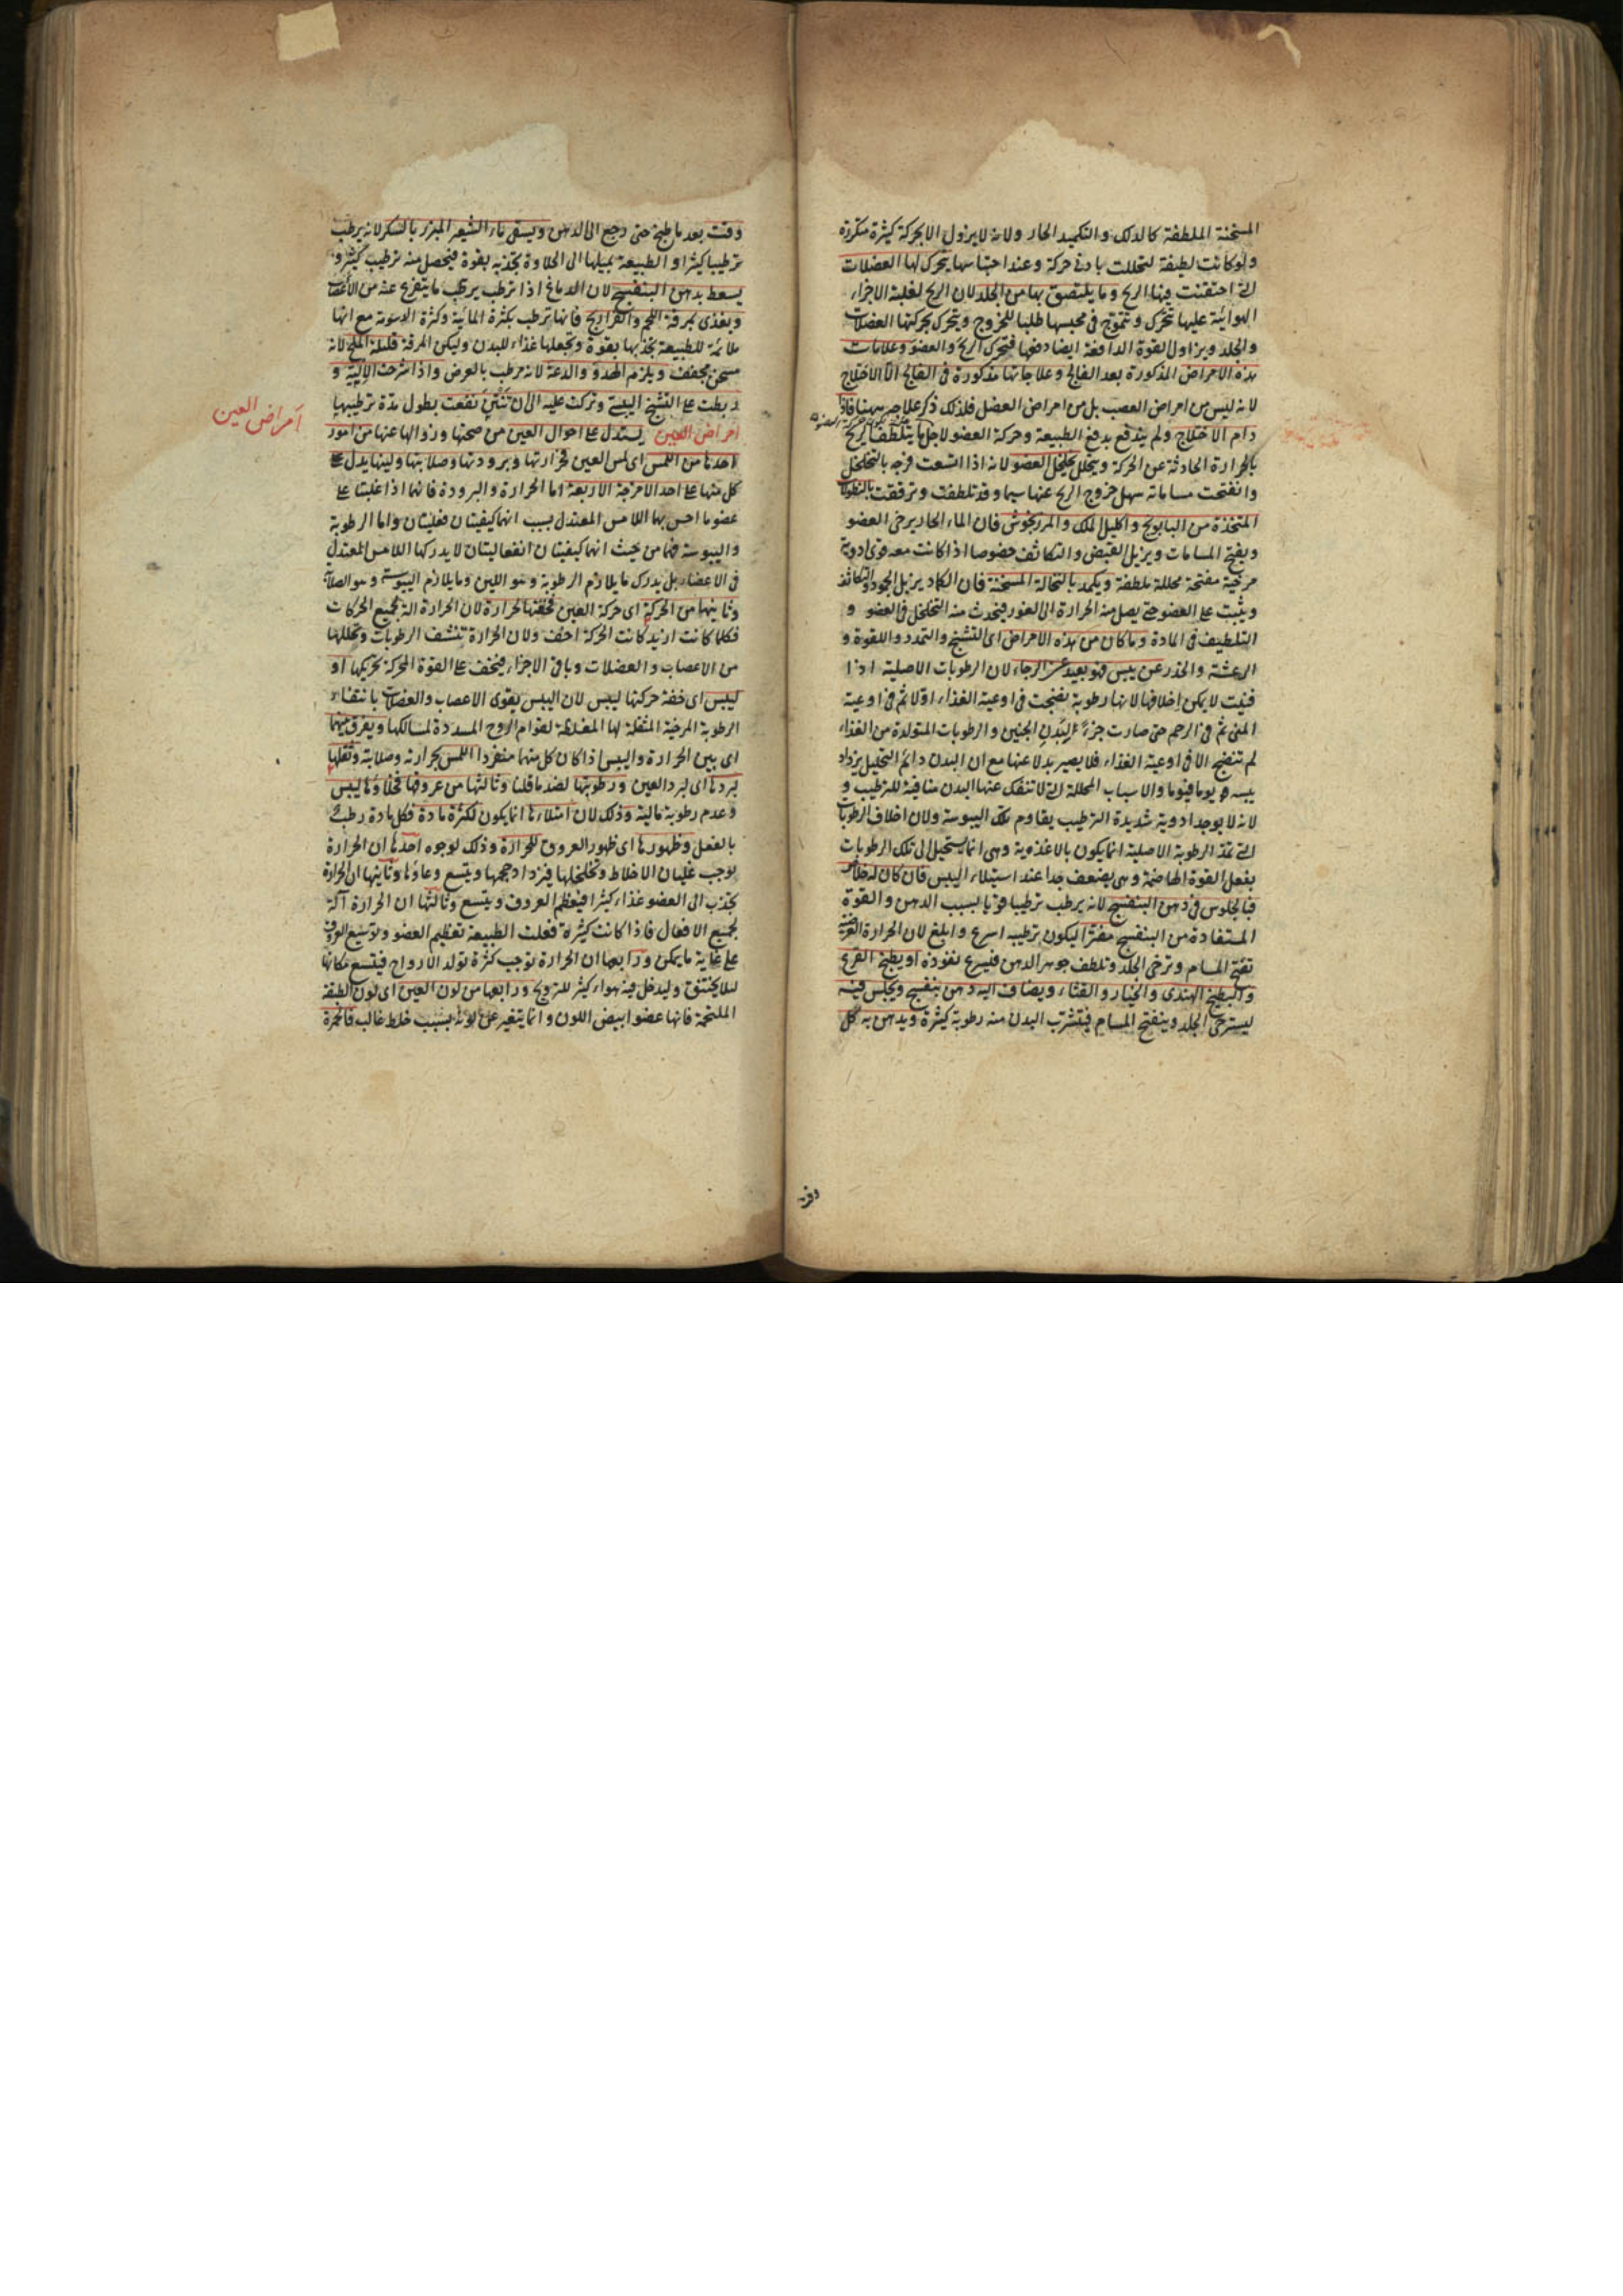 المسخنة الملطفة كالدلك والتكميد الحار ولانه لا يزول الا بحركة كثيرة متكررة
ولو كانت لطيفة لتحللت بادنى حركة وعند احتباسها يتحرك لها العضلات
التى احتقنت فيها الريح وما يلتصق بها من الجلد لان الريح لغلبة الاجزاء
الهوائية عليها تتحرك وتتموج فى محبسها طلبا للخروج ويتحرك بحركتها العضلات
والجلد ويزاول القوة الدافعة ايضا دفعها فتتحرك الريح والعضو وعلامات
هذه الامراض المذكورة بعد الفالج وعلاجاتها مذكورة فى الفالج الا الاختلاج
لانه ليس من امراض العصب بل من امراض العضل فلذلك ذكر علاجه ههنا فاذا
دام الاختلاج ولم يندفع بدفع الطبيعة وحركة العضو لاجلها يتلطف الريح
بالحرارة الحادثة عن الحركة ويتحلل بتخلخل العضو لانه اذا اتسعت فرجه بالتخلخل
وانفتحت مساماته سهل خروج الريح عنها سيما وقد تلطفت وترققت بالنطولات
المتخذة من البابونج واكليل الملك والمرزنجوش فان الماء الحار يرخى العضو
ويفتح المسامات ويزيل القبض والتكاثف خصوصا اذا كانت معه قوى ادوية
مرخية مفتحة محللة ملطفة ويكمد بالنخالة المسخنة فان الكماد يزيل الجمود والتكاثف
ويثبت على العضو حتى يصل منه الحرارة الى الغور فيحدث منه التخلخل فى العضو و
التلطيف فى المادة وما كان من هذه الامراض اى التشنج والتمدد واللقوة و
الرعشة والخدر عن يبس فهو بعيد عن الرجاء لان الرطوبات الاصلية اذا
فنيت لا يمكن اخلافها لانها رطوبة نضجت فى اوعية الغذاء اولا ثم فى اوعية
المنى ثم فى الرحم حتى صارت جزءا لبدن الجنين والرطوبات المتولدة من الغذاء
لم تنضج الا فى اوعية الغذاء فلا يصير بدلا عنها مع ان البدن دائم التحليل يزداد
يبسه يوما فيوما والاسباب المحللة التى لا تنفك عنها البدن منافية للترطيب و
لانه لا يوجد ادوية شديدة الترطيب يقاوم تلك اليبوسة ولان اخلاف الرطوبات
التى تمد الرطوبة الاصلية انما يكون بالاغذية وهى انما يستحيل الى تلك الرطوبات
بفعل القوة الهاضمة وهى يضعف جدا عند استيلاء اليبس فان كان له خلاص
فبالجلوس فى دهن البنفسج لانه يرطب ترطيبا قويا بسبب الدهن والقوة
المستفادة من البنفسج مفترا ليكون ترطيبه اسرع وابلغ لان الحرارة العرضية
تفتح المسام وترخى الجلد وتلطف جوهر الدهن فيسرع نفوذه او يطبخ القرع
والبطيخ الهندى والخيار والقثاء ويضاف اليه دهن بنفسج ويجلس فيه
ليسترخى الجلد وينفتح المسام فيتشرب البدن منه رطوبة كثيرة ويدهن به كل
وقت بعد ما طبخ حتى رجع الى الدهن ويسقى ماء الشعير المبزر بالسكر لانه يرطب
ترطيبا كثيرا والطبيعة بميلها الى الحلاوة يجذبه بقوة فيحصل منه ترطيب كثير و
يسعط بدهن البنفسج لان الدماغ اذا ترطب يرطب ما يتفرع عنه من الاعصاب
ويغذى بمرقة اللحم والفراريج فانها ترطب بكثرة المائية وكثرة الدسومة مع انها
ملائمة للطبيعة يجذبها بقوة وتجعلها غذاء للبدن وليكن المرقة قليلة الملح لانه
مسخن مجفف ويلزم الهدو والدعة لانه مرطب بالعرض واذا شرحت الالية و
ربطت على التشنج اليبسى وتركت عليه الى ان تنتن نفعت بطول مدة ترطيبها
امراض العين يستدل على احوال العين من صحتها وزوالها عنها من امور
احدها من اللمس اى لمس العين فحرارتها وبرودتها وصلابتها ولينها يدل على
كل منها على احد الامزجة الاربعة اما الحرارة والبرودة فانهما اذا غلبتا على
عضو ما احس بها اللامس المعتدل بسبب انهما كيفيتان فعليتان واما الرطوبة
واليبوسة فهما من حيث انهما كيفيتان انفعاليتان لا يدركها اللامس المعتدل
فى الاعضاء بل يدرك ما يلازم الرطوبة وهو اللين وما يلازم اليبوسة وهو الصلابة
وثانيها من الحركة اى حركة العين فخفتها لحرارة لان الحرارة آلة لجميع الحركات
فكلما كانت ازيد كانت الحركة اخف ولان الحرارة تنشف الرطوبات وتحللها
من الاعصاب والعضلات وباقى الاجزاء فيخف على القوة المحركة تحريكها او
ليبس اى خفة حركتها ليبس لان اليبس يقوى الاعصاب والعضلات بانتفاء
الرطوبة المرخية المثقلة لها المغلظة لقوام الروح المسددة لمسالكها ويفرق بينهما
اى بين الحرارة واليبس اذا كان كل منهما منفردا اللمس بحرارته وصلابته وثقلها
لبردها اى لبرد العين ورطوبتها لضد ما قلنا وثالثها من عروقها فخلاؤها ليبس
وعدم رطوبة مالية وذلك لان امتلاءها انما يكون لكثرة مادة فكل مادة رطبة
بالفعل وظهورها اى ظهور العروق للحرارة وذلك لوجوه احدها ان الحرارة
يوجب غليان الاخلاط وتخلخلها فيزداد حجمها ويتسع وعاؤها وثانيها ان الحرارة
يجذب الى العضو غذاء كثيرا فيعظم العروق ويتسع وثالثها ان الحرارة آلة
لجميع الافعال فاذا كانت كثيرة فعلت الطبيعة تعظيم العضو وتوسيع العروق
على غاية ما يمكن ورابعها ان الحرارة توجب كثرة تولد الارواح فيتسع مكانها
لئلا يختنق وليدخل فيه هواء كثير للترويح ورابعها من لون العين اى لون الطبقة
الملتحمة فانها عضو ابيض اللون وانما يتغير عن لونه بسبب خلط غالب فالحمرة
أمراض العين